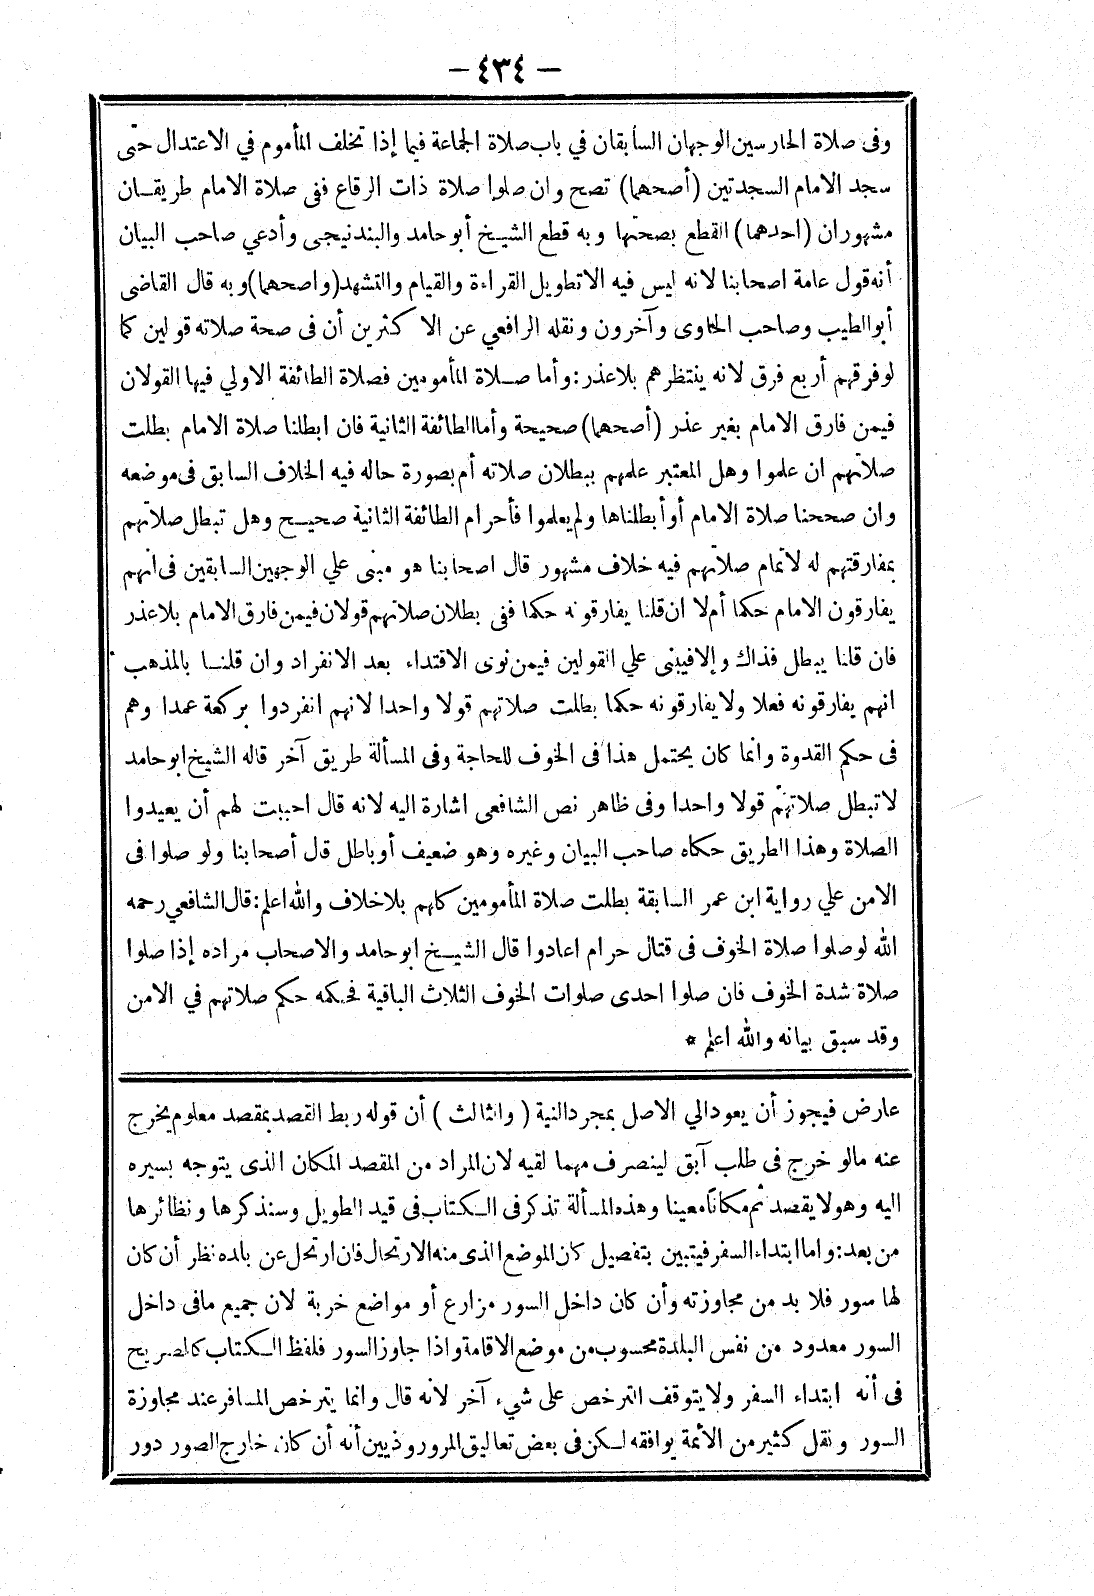 — ٤٣٤ —
وفى صلاة الحارسين الوجهان السابقان في باب صلاة الجماعة فيما إذا تخلف المأموم في الاعتدال حتى
سجد الامام السجدتين (أصحهما) تصح وان صلوا صلاة ذات الرقاع ففى صلاة الامام طريقان
مشهوران (احدهما) القطع بصحتها وبه قطع الشيخ أبو حامد والبندنيجى وأدعي صاحب البيان
أنه قول عامة اصحابنا لانه ليس فيه الا تطويل القراءة والقيام والتشهد (واصحهما) وبه قال القاضى
أبو الطيب وصاحب الحاوى وآخرون ونقله الرافعي عن الاكثرين أن فى صحة صلاته قولين كما
لو فرقهم أربع فرق لانه ينتظرهم بلا عذر: وأما صلاة المأمومين فصلاة الطائفة الاولي فيها القولان
فيمن فارق الامام بغير عذر (أصحهما) صحيحة وأما الطائفة الثانية فان ابطلنا صلاة الامام بطلت
صلاتهم ان علموا وهل المعتبر علمهم ببطلان صلاته أم بصورة حاله فيه الخلاف السابق فى موضعه
وان صححنا صلاة الامام أو أبطلناها ولم يعلموا فأحرام الطائفة الثانية صحيح وهل تبطل صلاتهم
بمفارقتهم له لاتمام صلاتهم فيه خلاف مشهور قال اصحابنا هو مبنى علي الوجهين السابقين فى انهم
يفارقون الامام حكما أم لا ان قلنا يفارقونه حكما ففى بطلان صلاتهم قولان فيمن فارق الامام بلا عذر
فان قلنا يبطل فذاك وإلا فيبنى علي القولين فيمن نوى الاقتداء بعد الانفراد وان قلنا بالمذهب
انهم يفارقونه فعلا ولا يفارقونه حكما بطلت صلاتهم قولا واحدا لانهم انفردوا بركعة عمدا وهم
فى حكم القدوة وانما كان يحتمل هذا فى الخوف للحاجة وفى المسألة طريق آخر قاله الشيخ ابو حامد
لا تبطل صلاتهم قولا واحدا وفى ظاهر نص الشافعى اشارة اليه لانه قال احببت لهم أن يعيدوا
الصلاة وهذا الطريق حكاه صاحب البيان وغيره وهو ضعيف أو باطل قل أصحابنا ولو صلوا فى
الامن علي رواية ابن عمر السابقة بطلت صلاة المأمومين كلهم بلا خلاف والله اعلم: قال الشافعي رحمه
الله لو صلوا صلاة الخوف فى قتال حرام اعادوا قال الشيخ ابو حامد والاصحاب مراده إذا صلوا
صلاة شدة الخوف فان صلوا احدى صلوات الخوف الثلاث الباقية فحكمه حكم صلاتهم في الامن
وقد سبق بيانه والله اعلم *
عارض فيجوز أن يعود الي الاصل بمجرد النية (والثالث) أن قوله ربط القصد بمقصد معلوم يخرج
عنه مالو خرج فى طلب آبق لينصرف مهما لقيه لان المراد من المقصد المكان الذى يتوجه بسيره
اليه وهو لا يقصد ثم مكانا معينا وهذه المسألة تذكر فى الكتاب فى قيد الطويل وسنذكرها ونظائرها
من بعد: واما ابتداء السفر فيتبين بتفصيل كان الموضع الذى منه الارتحال فان ارتحل عن بلده نظر أن كان
لها سور فلا بد من مجاوزته وأن كان داخل السور مزارع أو مواضع خربة لان جميع مافى داخل
السور معدود من نفس البلدة محسوب من موضع الاقامة واذا جاوز السور فلفظ الكتاب كالصريح
فى أنه ابتداء السفر ولا يتوقف الترخص على شيء آخر لانه قال وانما يترخص المسافر عند مجاوزة
السور ونقل كثير من الأئمة يوافقه لكن فى بعض تعاليق المروروذيين أنه أن كان خارج الصور دور